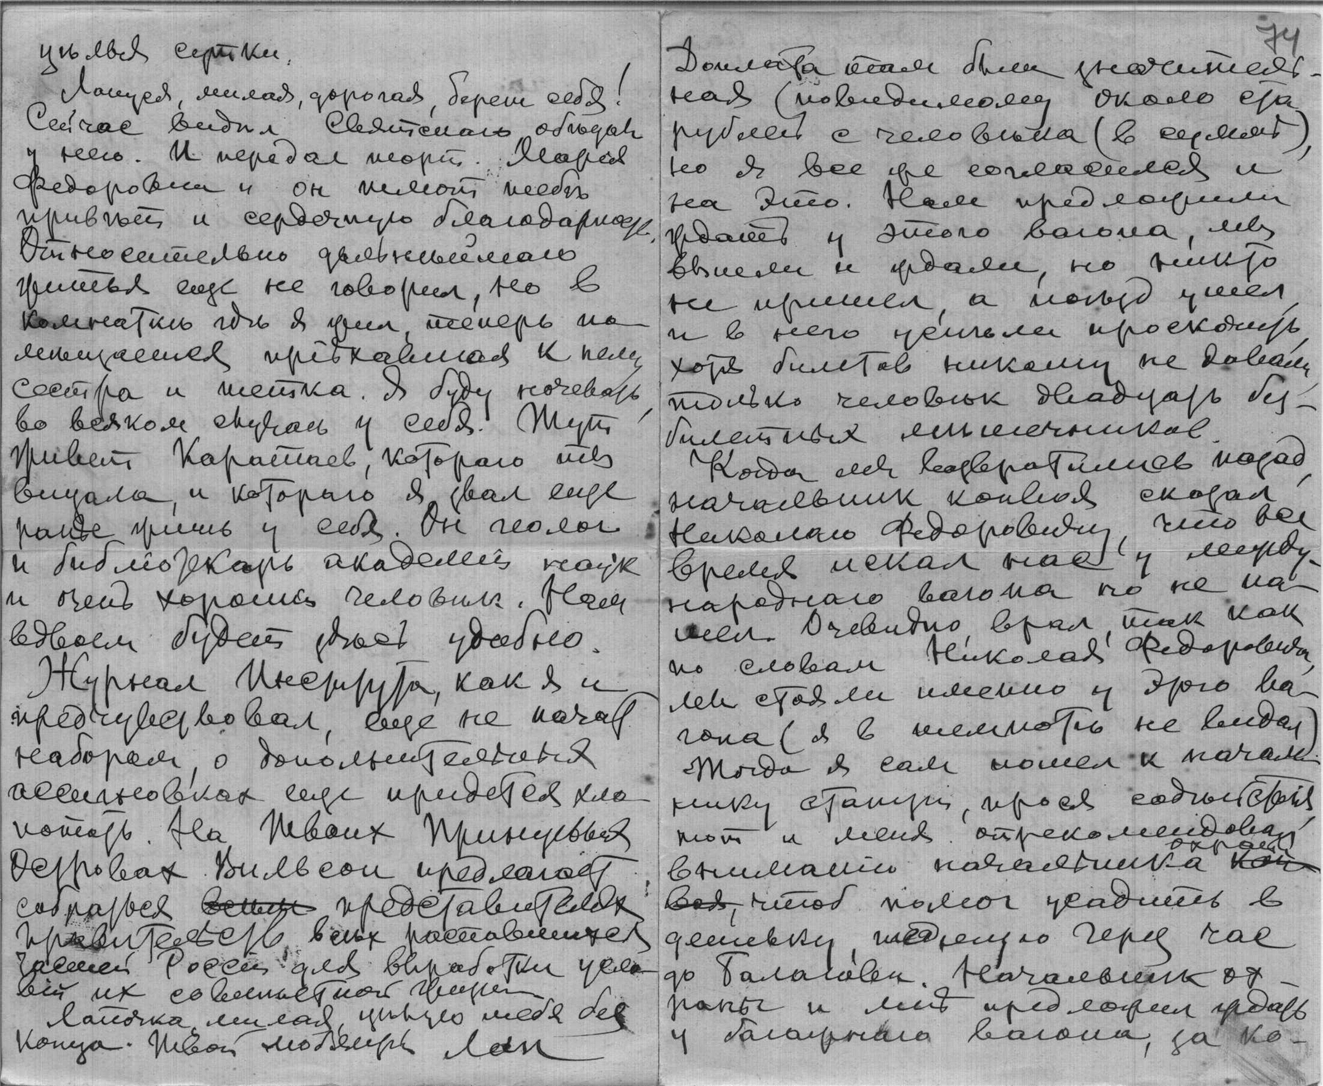 цѣлыя сутки.
Лапуся, милая, дорогая, береги себя!
Сейчас видѣл Святского, обѣдал
у него. И передал торт. Мария
Федоровна и он шлют тебѣ
привѣт и сердечную благодарность.
Относительно дальнѣйшаго
житья еще не говорил, но в
комнатѣ гдѣ я жил, теперь по-
мѣщается пріѣхавшая к нему
сестра и тетка. Я буду ночевать,
во всяком случаѣ у себя. Тут
живет Каратаев, котораго ты
видала, и котораго я звал еще
раньше жить у себя. Он геолог
и библіотекарь академіи наук
и очень хорошій человѣк. Нам
вдвоем будет здѣсь удобно.
Журнал Института, как я и
предчувствовал, еще не начат
набором, о дополнительных
ассигновках еще придется хло-
потать. На Твоих Принцевых
Островах Вильсон предлагает
собраться представителям
правительств всѣх распавшихся
частей Россіи для выработки усло-
вій их совмѣстной жизни
Лапочка, милая, цѣлую тебя без
конца. Твой любящій Лап
74
Доплата там была значитель-
ная (повидимому около ста
рублей с человѣка (в ),
но я все же согласился и
на это. Нам предложили
ждать у этого вагона, мы
вышли и ждали, но никто
не пришел, а поѣзд ушел,
и в него успѣли проскочить,
хотя билетов никому не давали,
только человѣк двадцать без-
билетных мѣшечников.
Когда мы возвратились назад,
начальник конвоя сказал
Николаю Федоровичу, что все
время искал нас у между-
народнаго вагона но не на-
шел. Очевидно, врал, так как
по словам Николая Федоровича,
мы стояли именно у этого ва-
гона (я в темнотѣ не видал)
Тогда я сам пошел к началь-
нику станціи, прося содѣйствія,
тот и меня отрекомендовал
вниманію начальника охраны
, чтоб помог усадить в
дешевку, идущую через час
до Балаговки. Начальник ох-
раны и мнѣ предложил ждать
у багажнаго вагона, за ко-